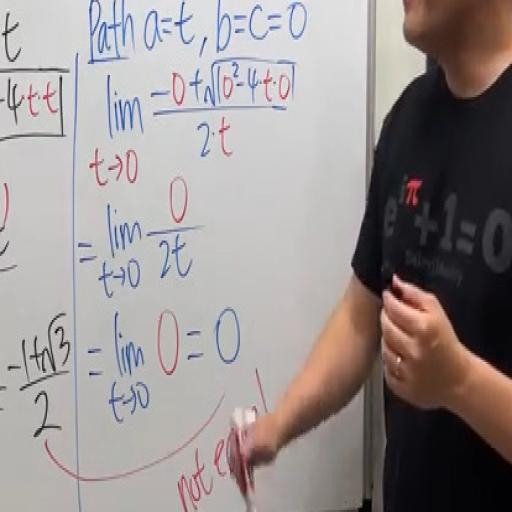 t
-4·t·t|
= -1+√3 / 2
Path a=t, b=c=0
lim t→0 -0+√|0²-4·t·0| / 2·t
= lim t→0 0 / 2t
= lim t→0 0 = 0
not
e^iπ+1=0